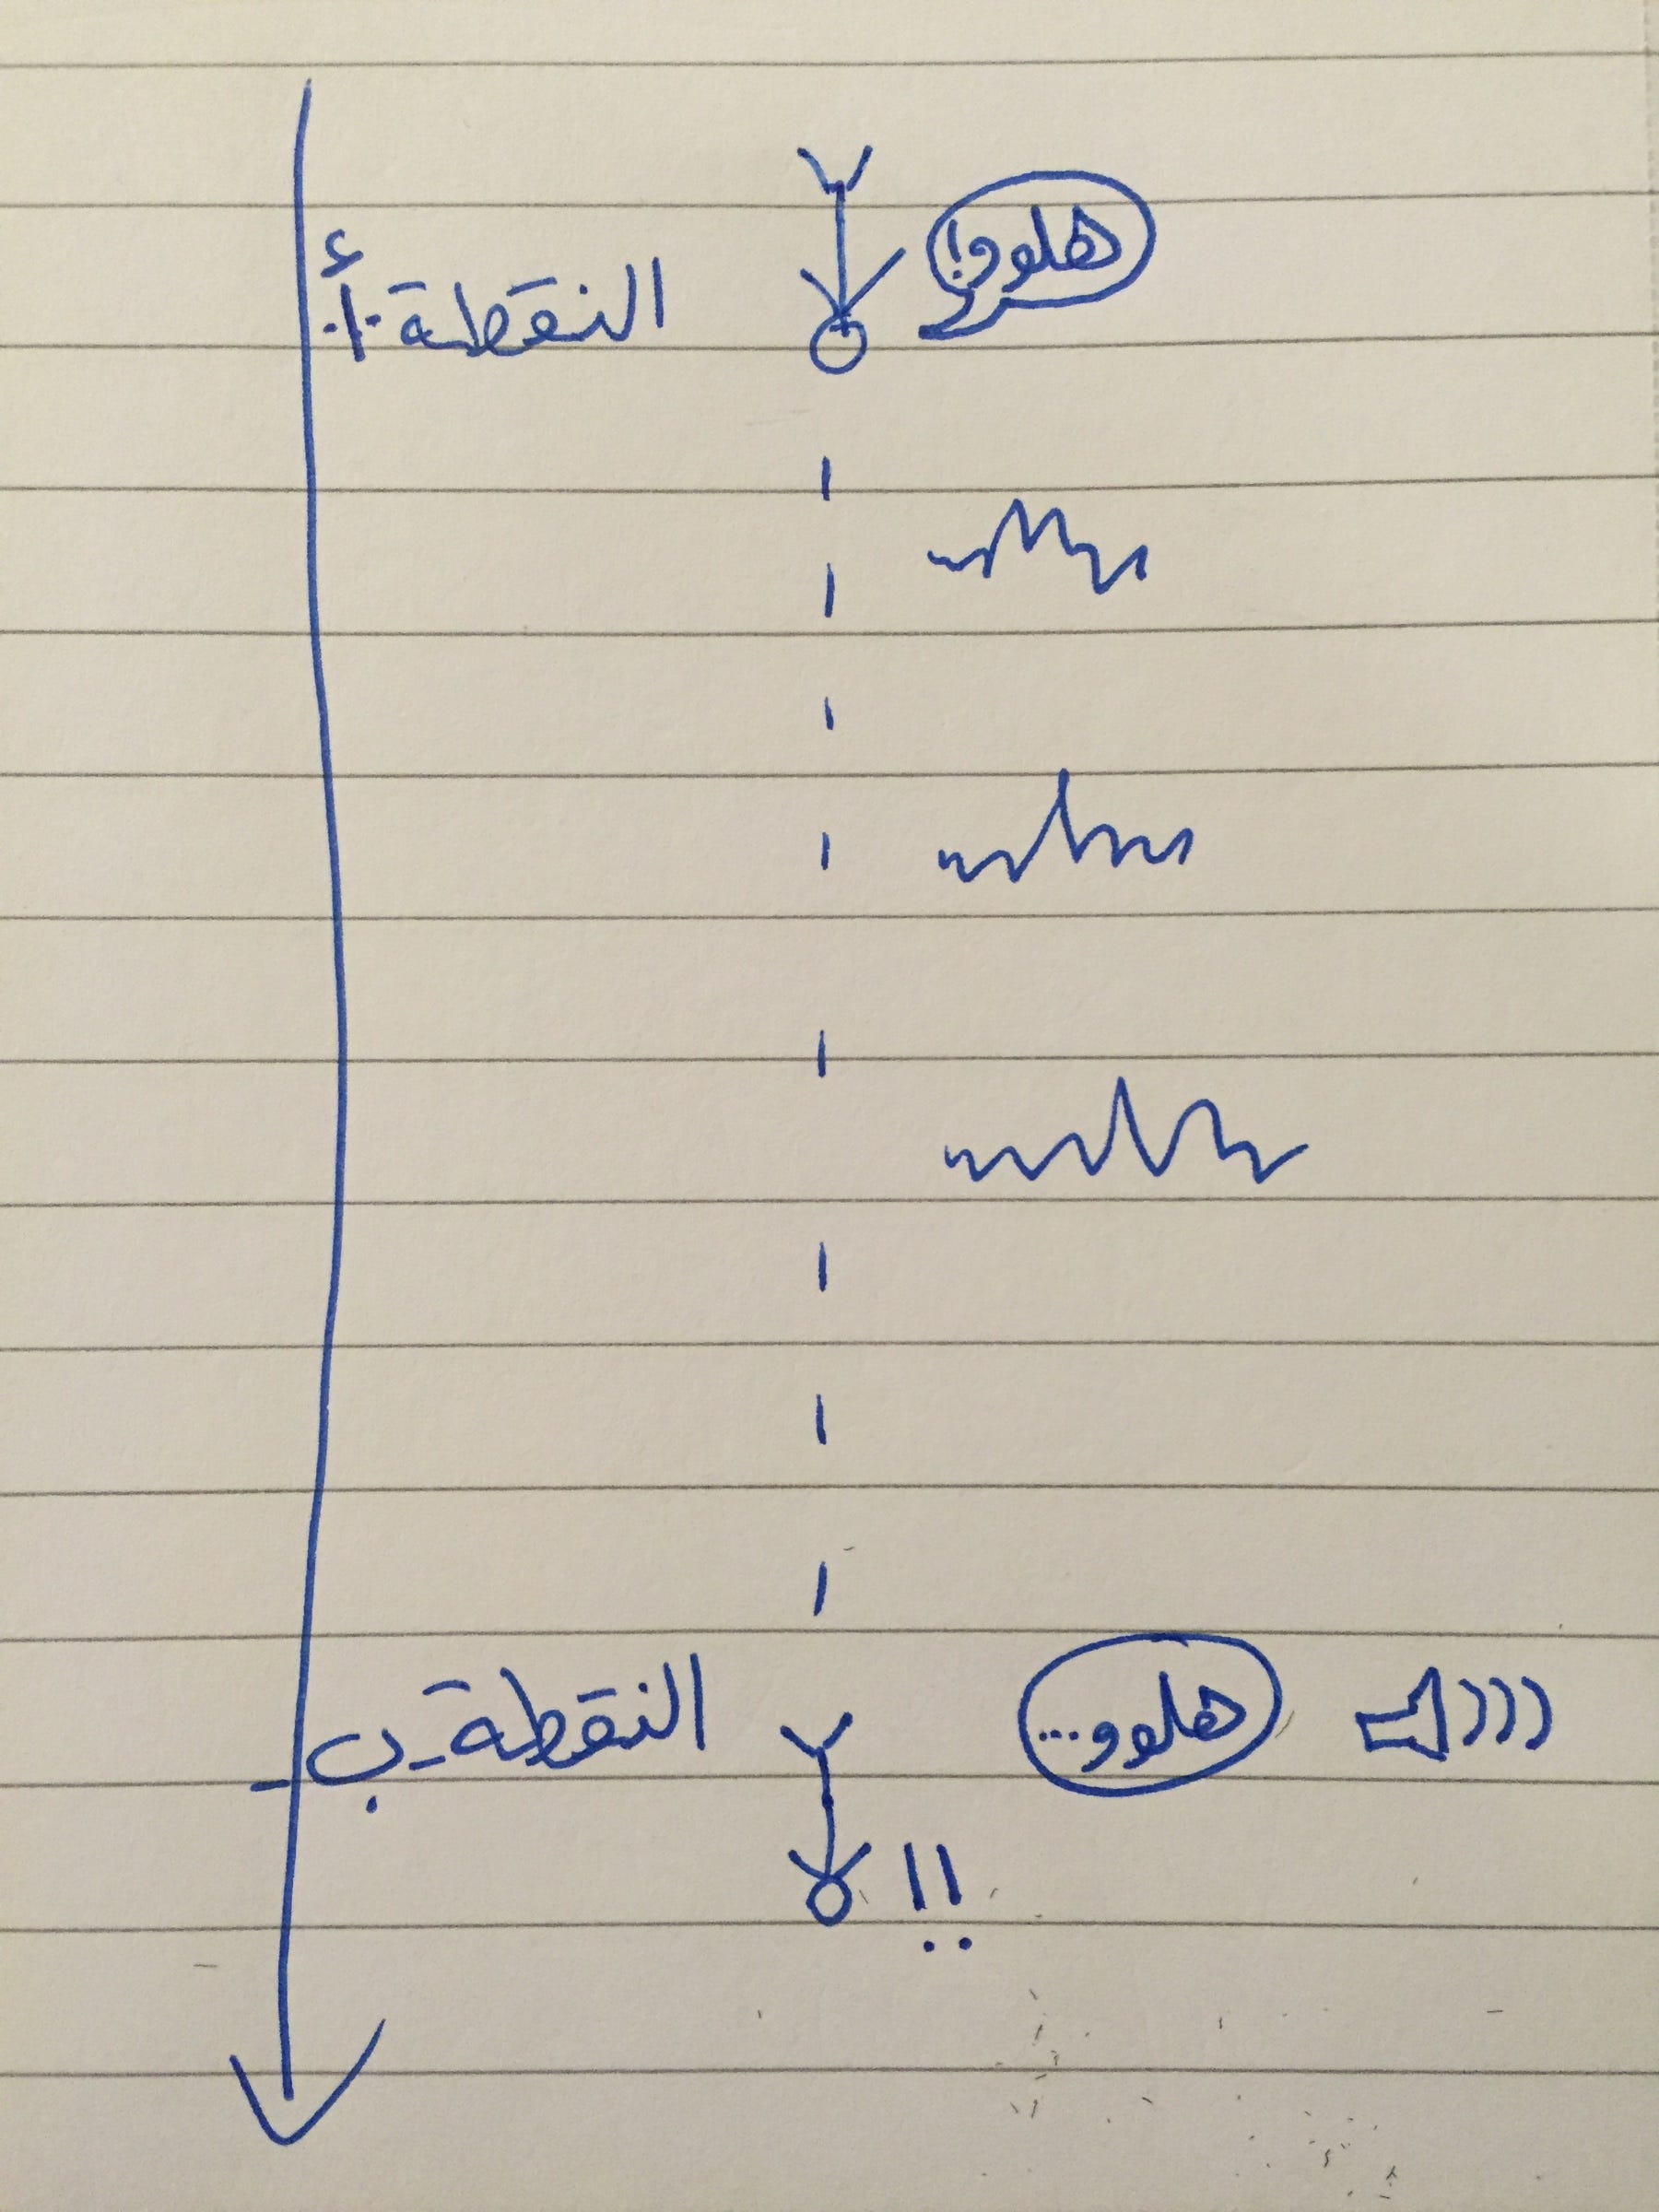 هلوو!
النقطة -أ-
هلوو...
النقطة -ب-
!!